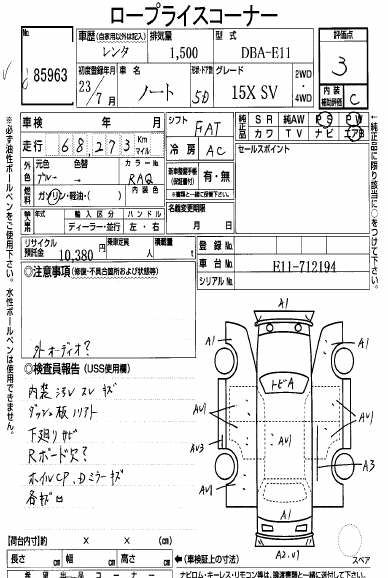 ロープライスコーナー
No. 85963
車歴(自家用以外は記入) レンタ
排気量 1,500
型式 DBA-E11
評価点 3
初度登録年月 23/7
車名 ノート
形状・ドア数 5D
グレード 15X SV
2WD・4WD
内装補助評価 C
車検 年 月
走行 68,273 Km マイル
シフト FAT
冷房 AC
純正品 SR 純AW PS PW
カワ TV ナビ エアB
セールスポイント
外色 元色 ブルー 色替
カラーNo. RAQ
内装色
燃料 ガソリン・軽油・( )
新車整備手帳(保証書付) 有・無
輸入車 年式 輸入区分 ハンドル
ディーラー・並行 左・右
名義変更期限 月 日
リサイクル預託金 10,380 円
乗車定員 人
積載量 t
登録No.
車台No. E11-712194
シリアルNo.
◎注意事項(修復・不具合箇所および状態等)
外オーディオ?
◎検査員報告(USS使用欄)
内装 汚レ スレ キズ
ダッシュ板
下廻りサビ
Rボード欠?
ホイルCP、Dミラーキズ
※必ず油性ボールペンをご使用下さい。水性ボールペンは使用できません。
(純正品に限り該当に○をつけて下さい。)
A1
A1
A1
トビA
AU1
AU1
AU1
AU3
A3
AU1
A2.U1
スペア
【荷台内寸】 × × cm
長さ cm 幅 cm 高さ cm
←(車検証上の寸法)
希望出品コーナー
ナビロム・キーレス・リモコン等は、譲渡書類と一緒に送付して下さい。